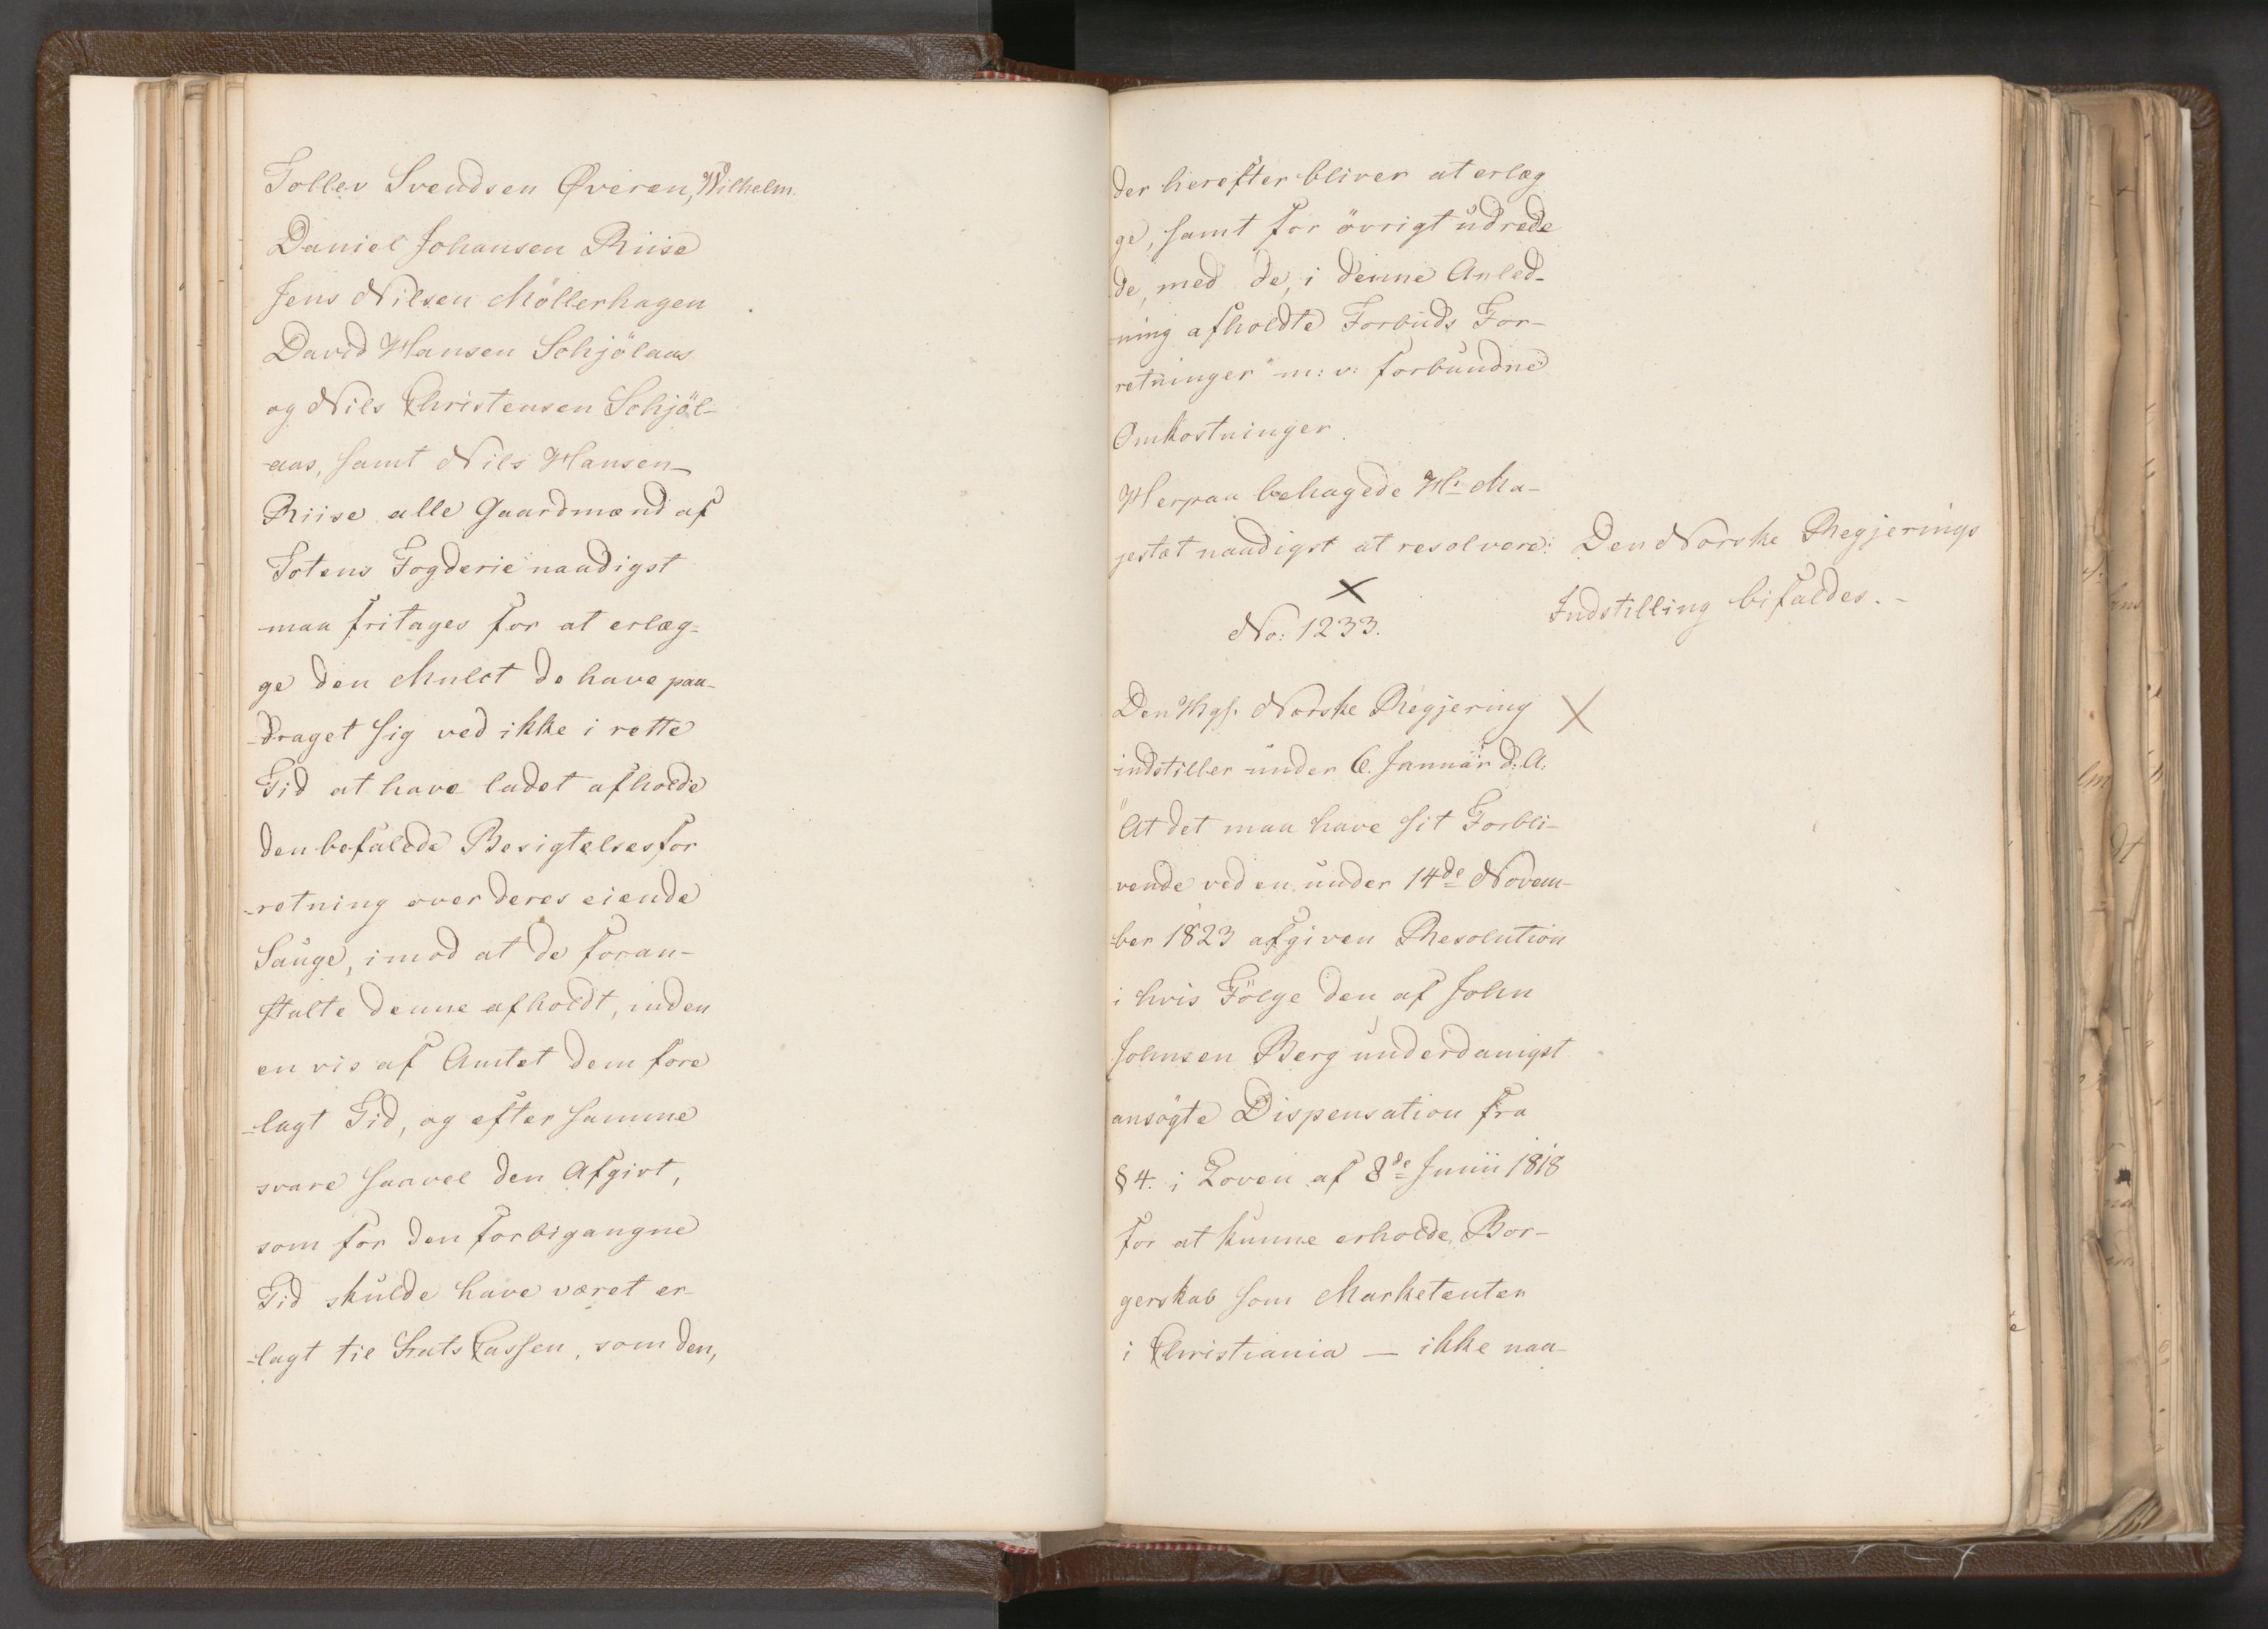 Tollev Svendsen Øveren, Wilhelm
Daniel Johansen Riise
Jens Nilsen Möllerhagen
David Hansen Schjölaas
og Nils Christensen Schjöl-
-aas, samt Nils Hansen
Riise alle Gaardmænd af
Totens Fogderie naadigst
maa fritages for at erlæg-
ge den Mulct de have paa-
-draget sig ved ikke i rette
Tid at have ladet afholde
den befalede Besigtelsesfor
-retning over deres eiende
Sauge, imod at de foran-
stalte denne afholdt, inden
en vis af Amtet dem fore
-lagt Tid, og efter samme
svare saavel den Afgivt,
som for den forbigangne
Tid skulde have været er-
-lagt til Stats Cassen, som den,
der herefter bliver at erlæg
ge, samt for övrigt udrede
de, med de, i denne Anled-
-ning afholdte Forbuds For-
retninger m: v: forbundne
Omkostninger.
Herpaa behagede Hs Ma-
jestæt naadigst at resolvere: Den Norske Regjerings
Indstilling bifaldes. -
No: 1233.
Den Kgl. Norske Regjering
indstiller under 6. Januar d: A:
"At det maa have sit Forbli-
vende ved en under 14de Novem-
ber 1823 afgiven Resolution
i hvis Fölge den af John
Johnsen Berg underdanigst
ansögte Dispensation fra
§ 4. i Loven af 8de Junii 1818
for at kunne erholde Bor-
gerskab som Marketenter
i Christiania — ikke naa-